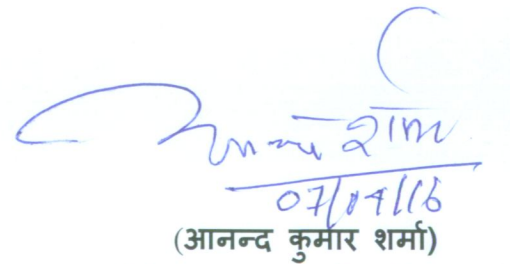 आनन्द शर्मा
07/04/16
(आनन्द कुमार शर्मा)